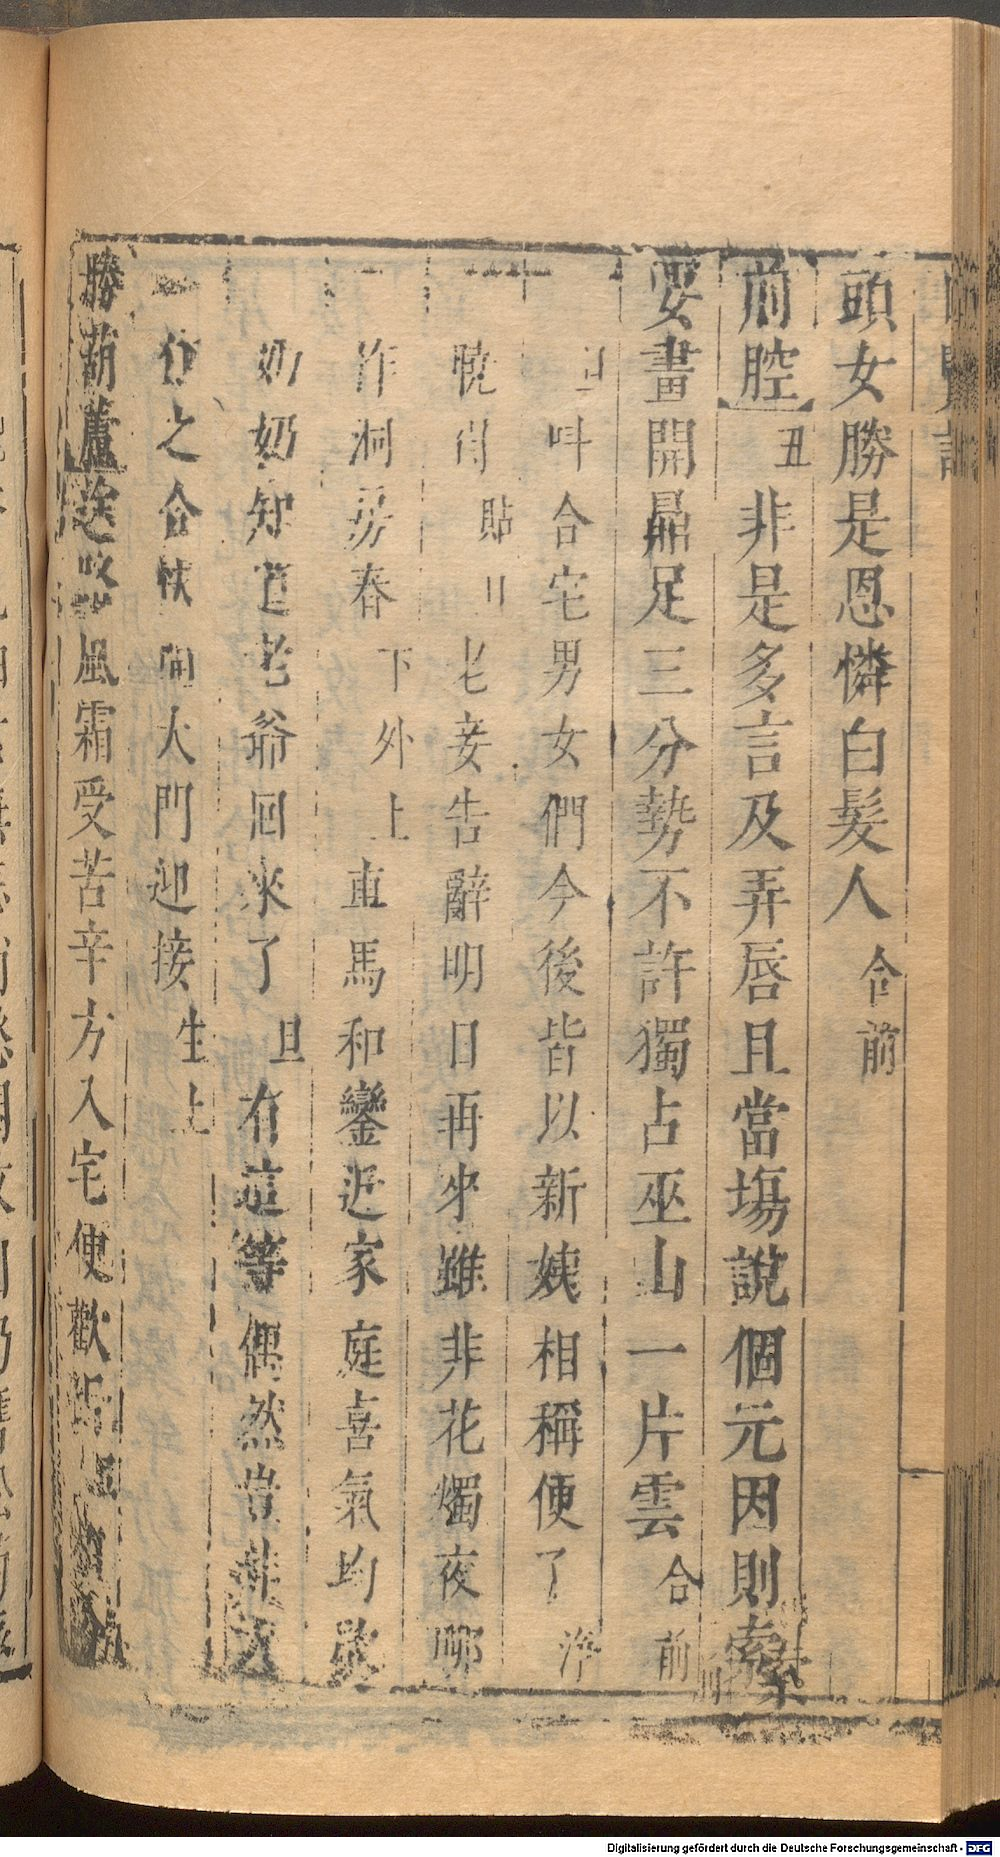 頭女勝是恩憐白髮人 合前
前腔 丑 非是多言及弄唇且當塲說個元因則索
要畫開鼎足三分勢不許獨占巫山一片雲 合前
叫合宅男女們今後皆以新姨相稱便了 淨
曉得 貼 老妾告辭明日再來雖非花燭夜
作洞房春 下 外上 車馬和鑾近家庭喜氣均
奶奶知道老爺回來了 旦 有這等偶然豈非
之合快開大門迎接 生上
勝葫蘆 風霜受苦辛方入宅便歡
Digitalisierung gefördert durch die Deutsche Forschungsgemeinschaft - DFG